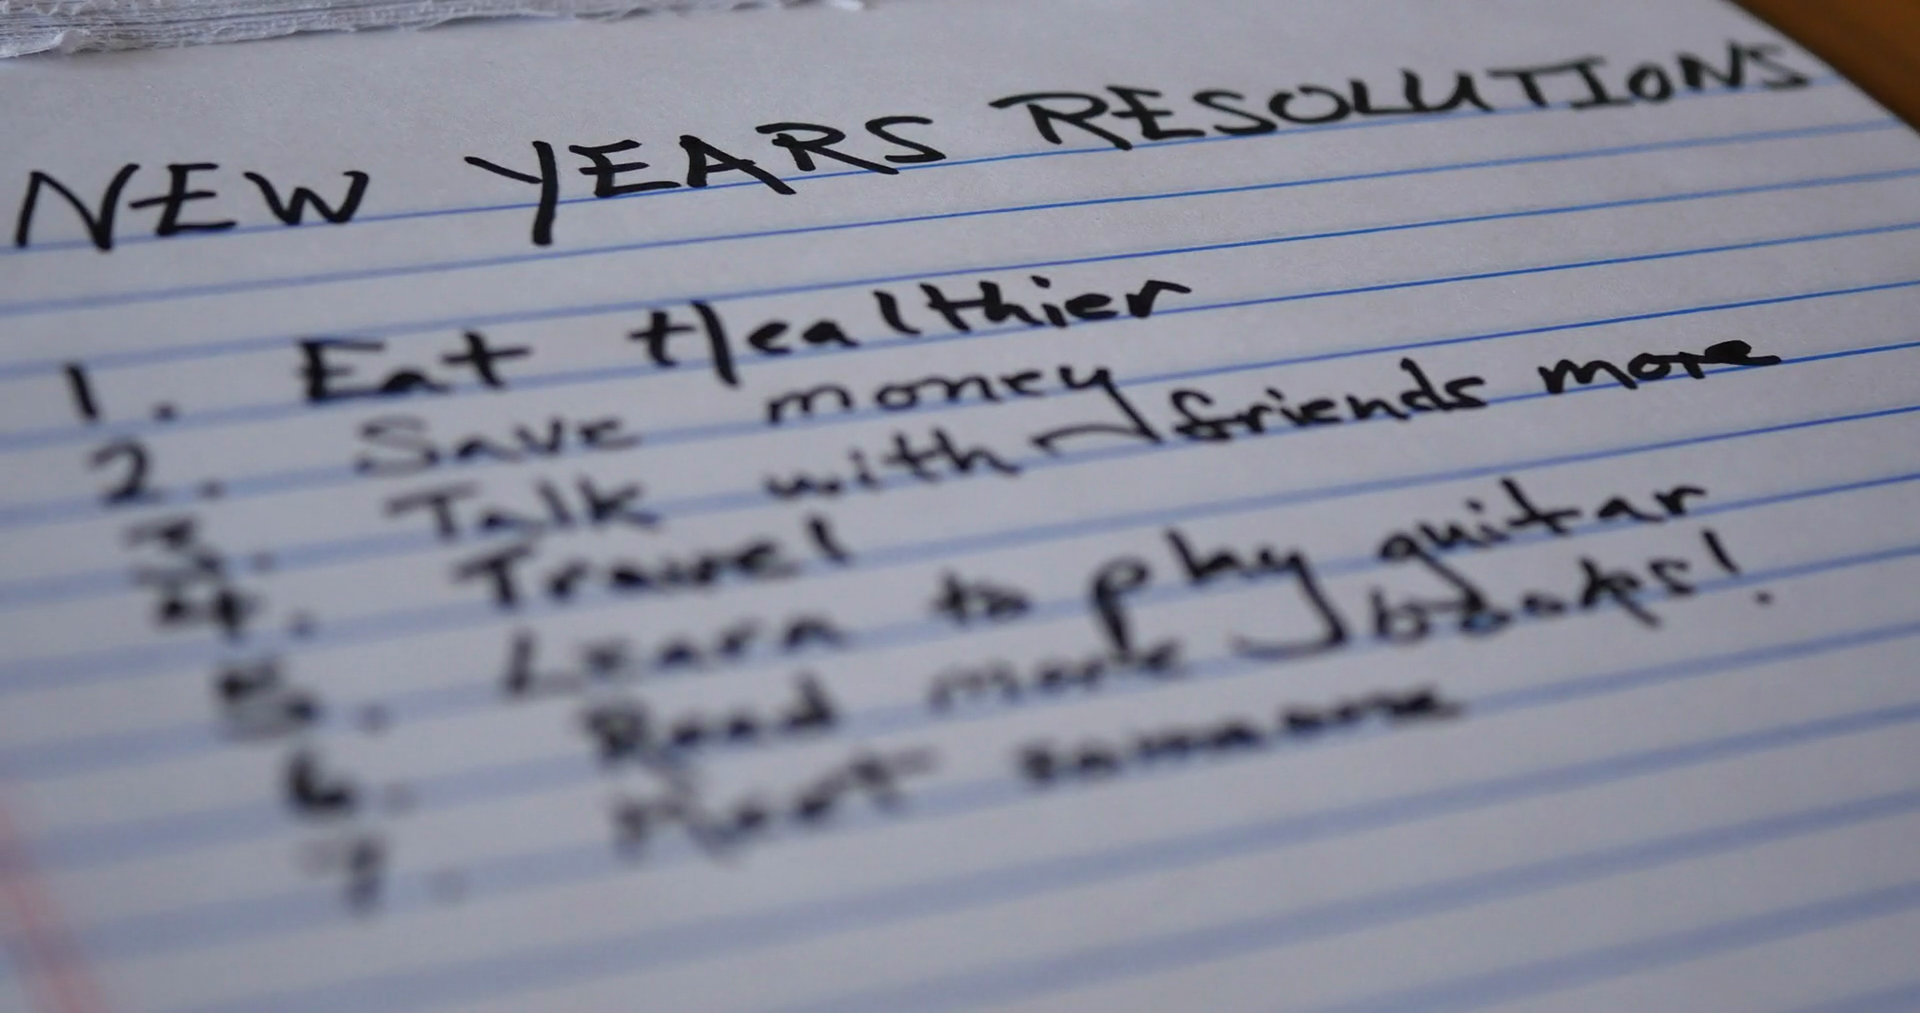 NEW YEARS RESOLUTIONS
1. Eat Healthier
2. Save money
3. Talk with friends more
4. Travel
5. Learn to play guitar
6. Read more books!
7. Meet someone